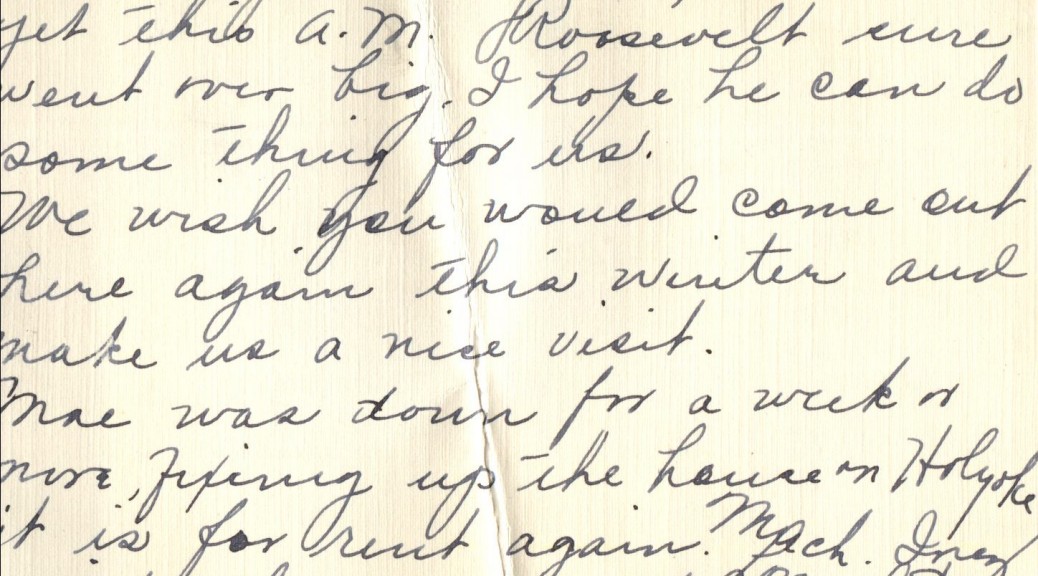 yet this A.M. Roosevelt sure
went over big. I hope he can do
some thing for us.
We wish you would come out
here again this winter and
make us a nice visit.
Mae was down for a week or
more, fixing up the house on Holyoke
it is for rent again. Mach. Inez